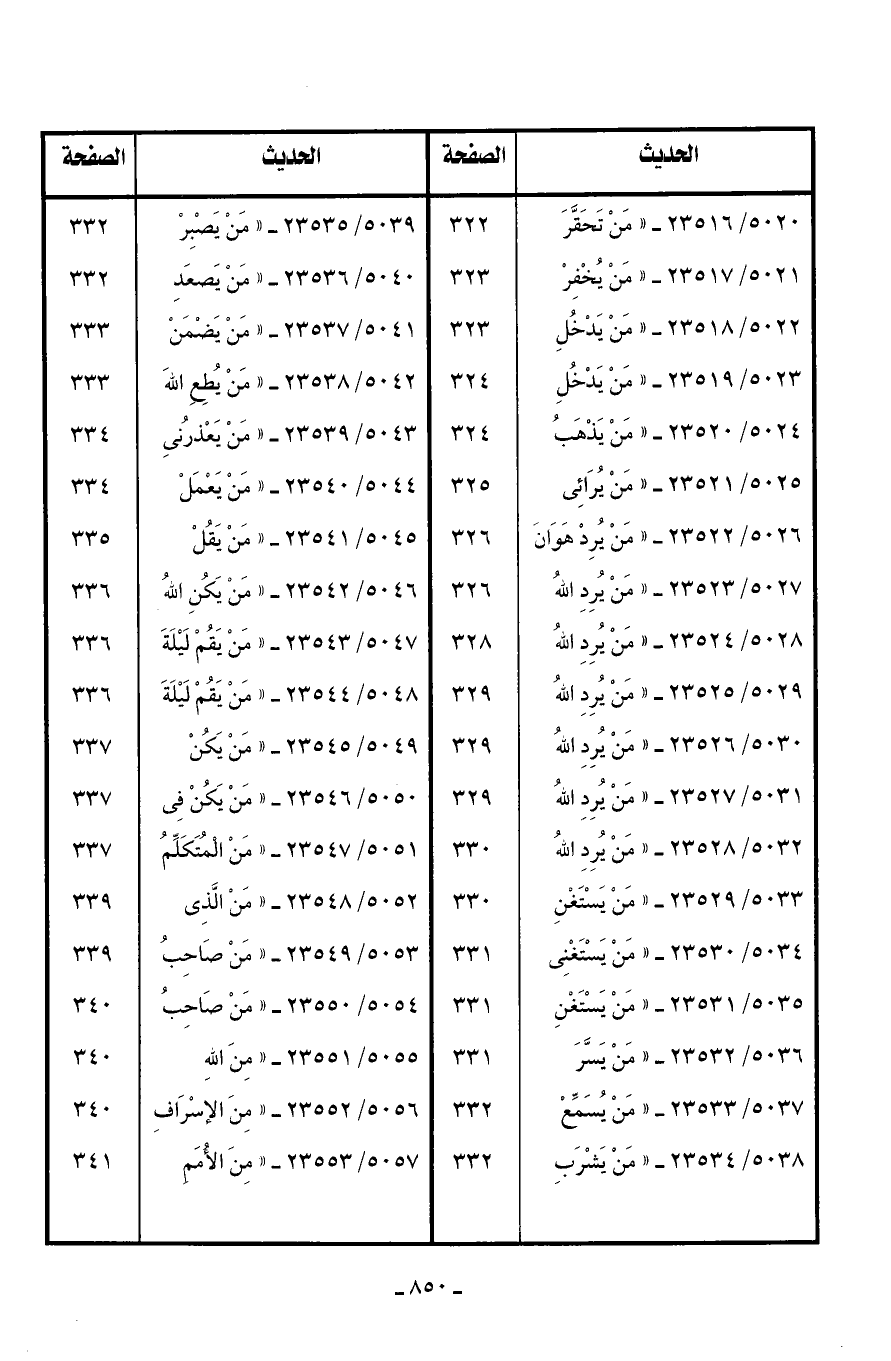 الحديث الصفحة
٥٠٢٠/ ٢٣٥١٦ ـ « مَنْ تَحَقَّرَ ٣٢٢
٥٠٢١/ ٢٣٥١٧ ـ « مَنْ يُخْفِرْ ٣٢٣
٥٠٢٢/ ٢٣٥١٨ ـ « مَنْ يَدْخُلِ ٣٢٣
٥٠٢٣/ ٢٣٥١٩ ـ « مَنْ يَدْخُلِ ٣٢٤
٥٠٢٤/ ٢٣٥٢٠ ـ « مَنْ يَذْهَبُ ٣٢٤
٥٠٢٥/ ٢٣٥٢١ ـ « مَنْ يُرَائِى ٣٢٥
٥٠٢٦/ ٢٣٥٢٢ ـ « مَنْ يُرِدْ هَوَانَ ٣٢٦
٥٠٢٧/ ٢٣٥٢٣ ـ « مَنْ يُرِدِ اللهُ ٣٢٦
٥٠٢٨/ ٢٣٥٢٤ ـ « مَنْ يُرِدِ اللهُ ٣٢٨
٥٠٢٩/ ٢٣٥٢٥ ـ « مَنْ يُرِدِ اللهُ ٣٢٩
٥٠٣٠/ ٢٣٥٢٦ ـ « مَنْ يُرِدِ اللهُ ٣٢٩
٥٠٣١/ ٢٣٥٢٧ ـ « مَنْ يُرِدِ اللهُ ٣٢٩
٥٠٣٢/ ٢٣٥٢٨ ـ « مَنْ يُرِدِ اللهُ ٣٣٠
٥٠٣٣/ ٢٣٥٢٩ ـ « مَنْ يَسْتَغْنِ ٣٣٠
٥٠٣٤/ ٢٣٥٣٠ ـ « مَنْ يَسْتَغْنِى ٣٣١
٥٠٣٥/ ٢٣٥٣١ ـ « مَنْ يَسْتَغْنِ ٣٣١
٥٠٣٦/ ٢٣٥٣٢ ـ « مَنْ يَسَّرَ ٣٣١
٥٠٣٧/ ٢٣٥٣٣ ـ « مَنْ يُسَمِّعْ ٣٣٢
٥٠٣٨/ ٢٣٥٣٤ ـ « مَنْ يَشْرَبِ ٣٣٢
الحديث الصفحة
٥٠٣٩/ ٢٣٥٣٥ ـ « مَنْ يَصْبِرْ ٣٣٢
٥٠٤٠/ ٢٣٥٣٦ ـ « مَنْ يَصعَدِ ٣٣٢
٥٠٤١/ ٢٣٥٣٧ ـ « مَنْ يَضْمَنْ ٣٣٣
٥٠٤٢/ ٢٣٥٣٨ ـ « مَنْ يُطِعِ اللهَ ٣٣٣
٥٠٤٣/ ٢٣٥٣٩ ـ « مَنْ يَعْذرُنِى ٣٣٤
٥٠٤٤/ ٢٣٥٤٠ ـ « مَنْ يَعْمَلْ ٣٣٤
٥٠٤٥/ ٢٣٥٤١ ـ « مَنْ يَقُلْ ٣٣٥
٥٠٤٦/ ٢٣٥٤٢ ـ « مَنْ يَكُنِ اللهُ ٣٣٦
٥٠٤٧/ ٢٣٥٤٣ ـ « مَنْ يَقُمْ لَيْلَةَ ٣٣٦
٥٠٤٨/ ٢٣٥٤٤ ـ « مَنْ يَقُمْ لَيْلَةَ ٣٣٦
٥٠٤٩/ ٢٣٥٤٥ ـ « مَنْ يَكُنْ ٣٣٧
٥٠٥٠/ ٢٣٥٤٦ ـ « مَنْ يَكُنْ فِى ٣٣٧
٥٠٥١/ ٢٣٥٤٧ ـ « مَنْ الْمُتَكَلِّمُ ٣٣٧
٥٠٥٢/ ٢٣٥٤٨ ـ « مَنْ الَّذِى ٣٣٩
٥٠٥٣/ ٢٣٥٤٩ ـ « مَنْ صَاحِبُ ٣٣٩
٥٠٥٤/ ٢٣٥٥٠ ـ « مَنْ صَاحِبُ ٣٤٠
٥٠٥٥/ ٢٣٥٥١ ـ « مِنَ اللهِ ٣٤٠
٥٠٥٦/ ٢٣٥٥٢ ـ « مِنَ الإِسْرَافِ ٣٤٠
٥٠٥٧/ ٢٣٥٥٣ ـ « مِنَ الأُمَمِ ٣٤١
ـ ٨٥٠ ـ